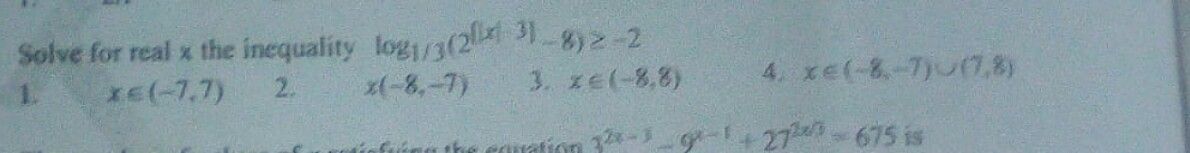 Solve for real x the inequality log1/3(2^[|x| - 3] - 8) ≥ -2
1. x∈(-7,7) 2. x(-8,-7) 3. x∈(-8,8) 4. x∈(-8,-7)∪(7,8)
the equation 3^2x-3 - 9^x-1 + 27^2x/3 = 675 is